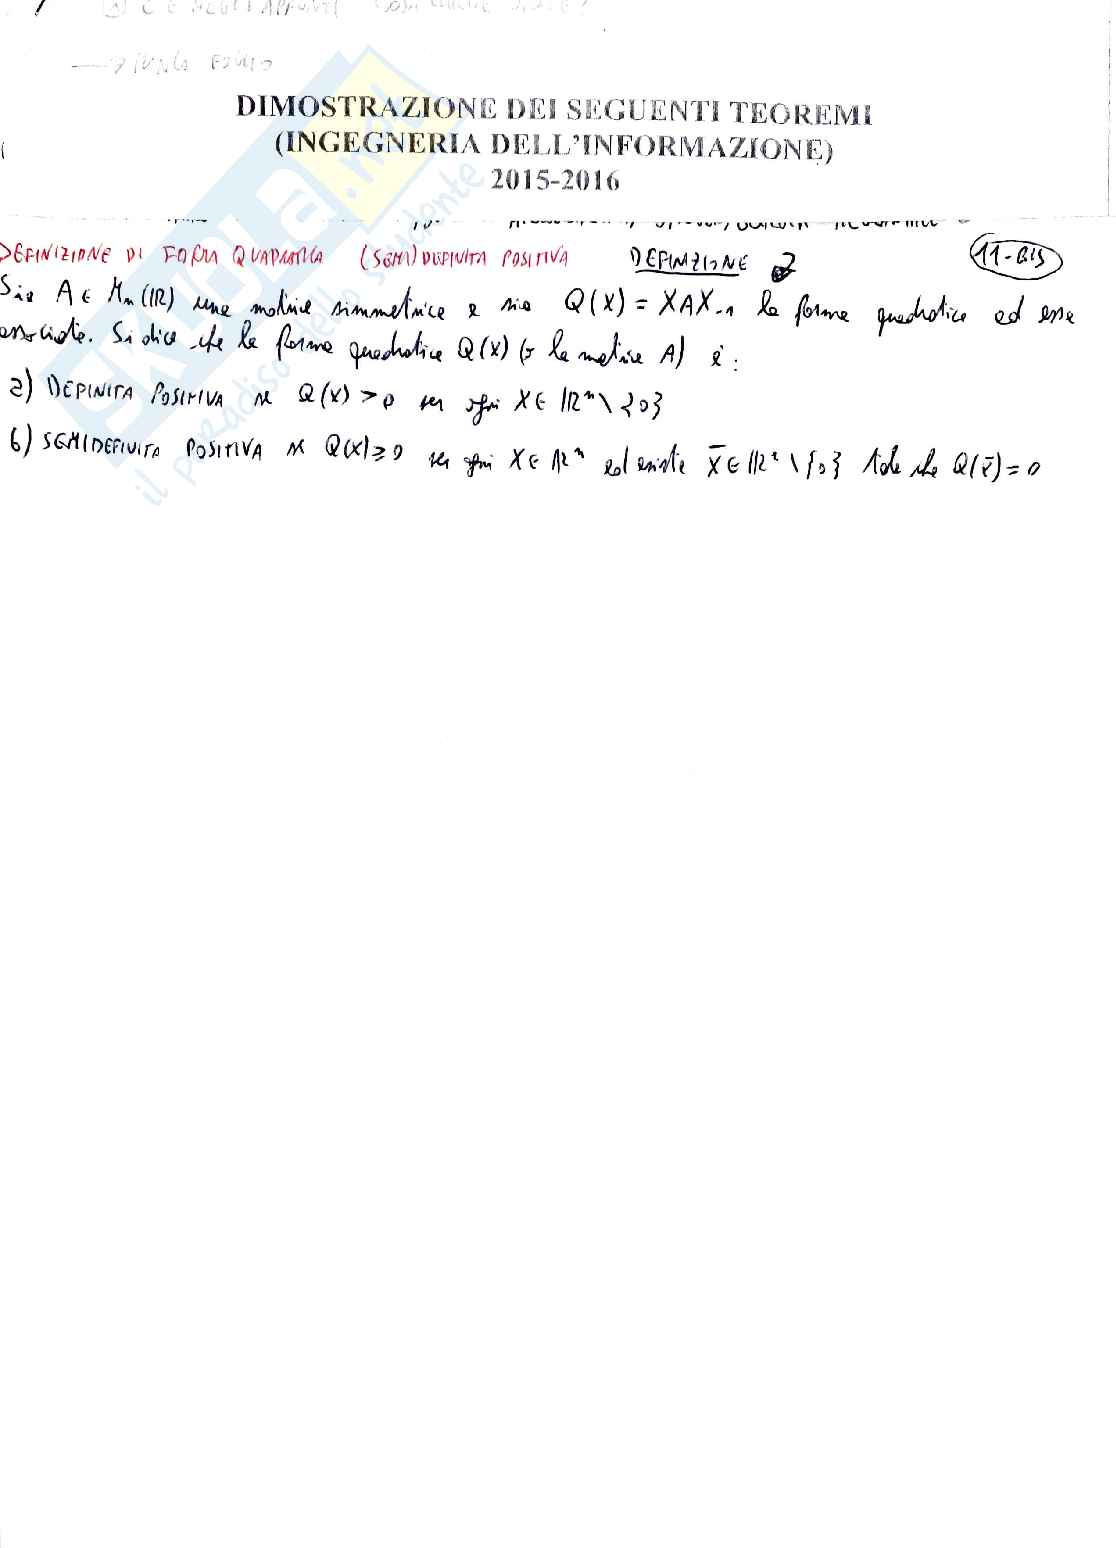 C'È NEGLI APPUNTI
DIMOSTRAZIONE DEI SEGUENTI TEOREMI
(INGEGNERIA DELL'INFORMAZIONE)
2015-2016
DEFINIZIONE DI FORMA QUADRATICA (SEMI)DEFINITA POSITIVA DEFINIZIONE 11-BIS
Sia A ∈ Mn(IR) una matrice simmetrica e sia Q(X) = XAX-1 la forma quadratica ad essa
associata. Si dice che la forma quadratica Q(X) (o la matrice A) è:
a) DEFINITA POSITIVA se Q(X) > 0 per ogni X ∈ IRⁿ \ {0}
b) SEMIDEFINITA POSITIVA se Q(X) ≥ 0 per ogni X ∈ IRⁿ ed esiste X̄ ∈ IRⁿ \ {0} tale che Q(x̄) = 0
SKUOLA.net
il paradiso dello studente